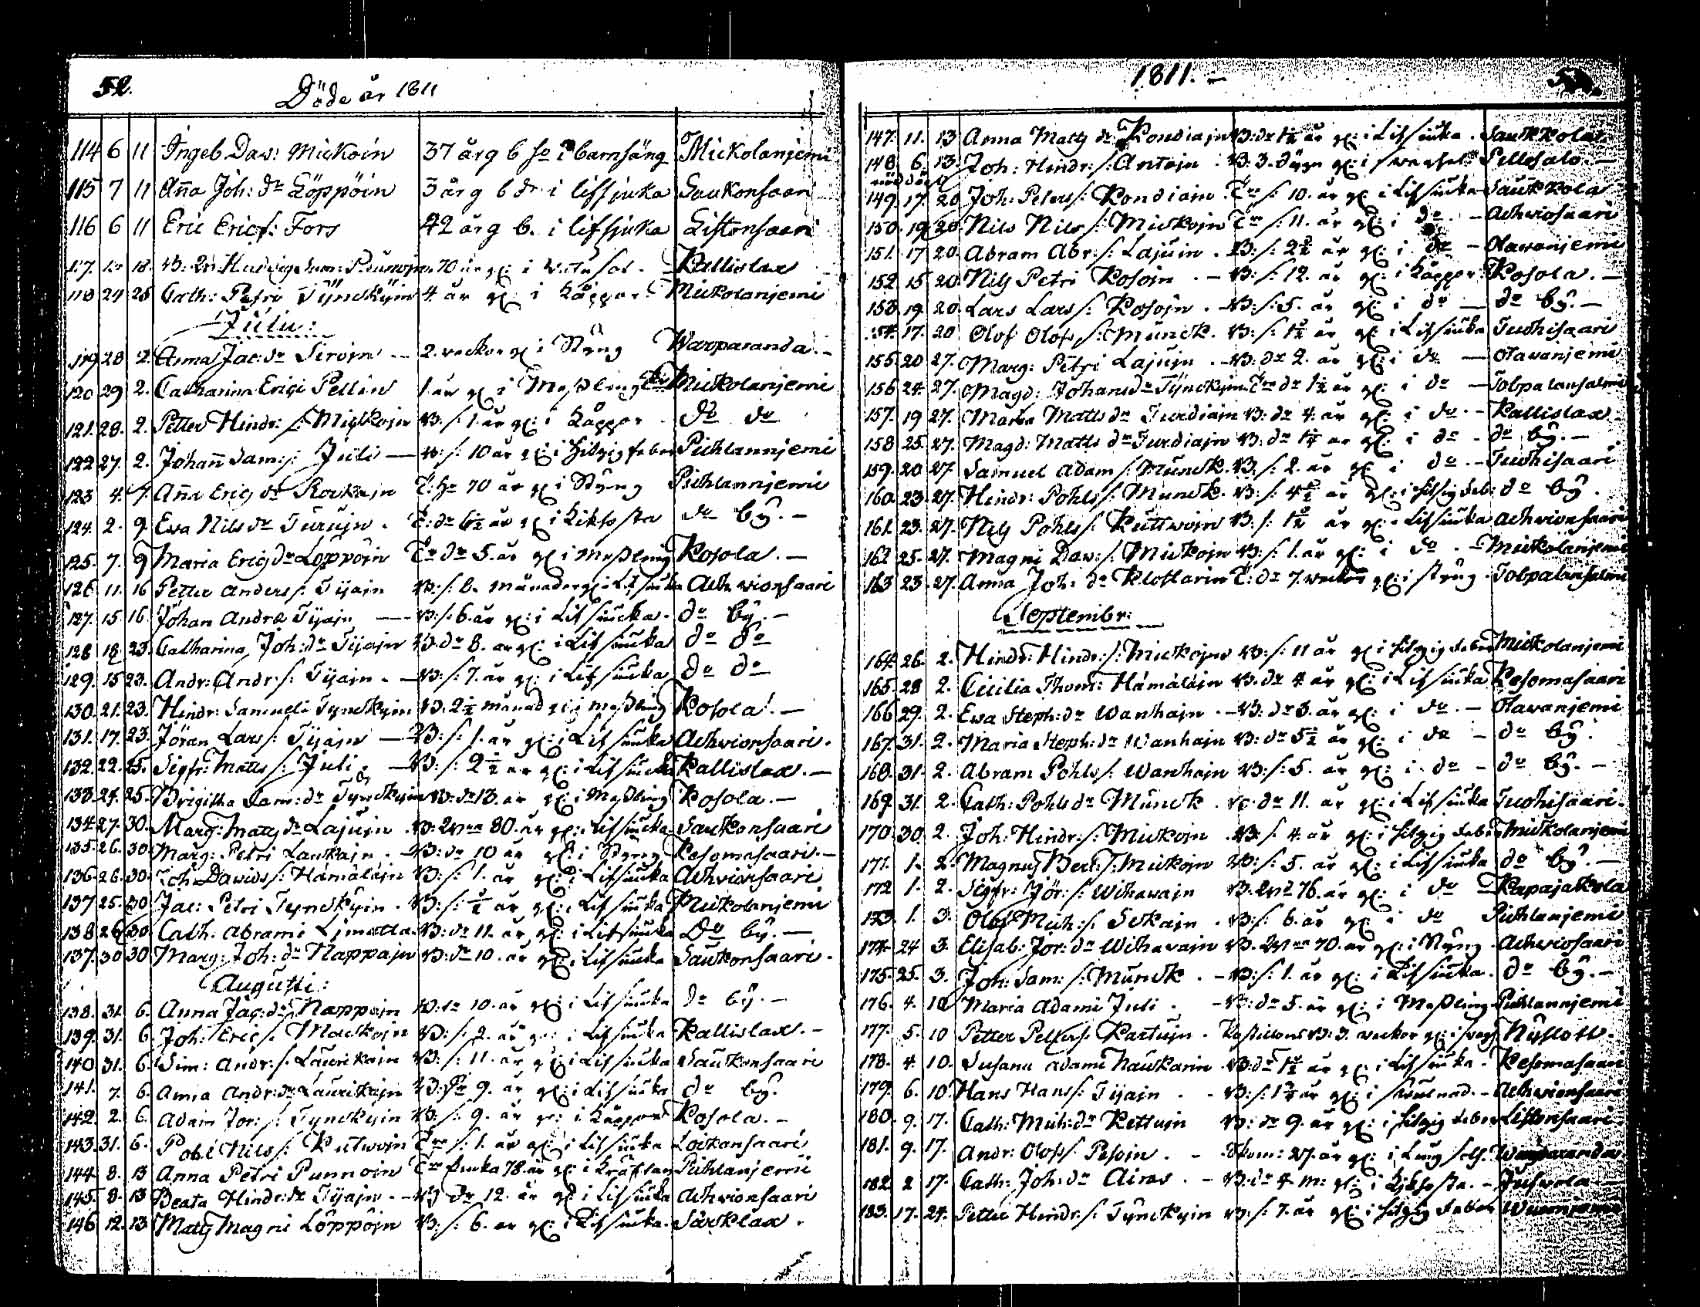 52.
Döde år 1811
114 6 11 Ingeb Dav: Mickoin 37 år g b so i barnsäng Mickolanjemi
115 7 11 Aña Joh: dr Löppöin 3 år g b dr i lifsjuka Saukonsaari
116 6 11 Eric Erics: Fors 42 år g b. i lifsjuka Listonsaari
117. 18. 70 år gl: i Kallislax
118 24 25 Cath: Petri Tynckyin 4 år gl i Koppor Mickolanjemi
Julii:
119 28 2. Anna Jac: dr 2. veckor gl i Styng Warparanda.
120 29 2. Catharina Erici Pellin 1. år gl i Messling Mickolanjemi
121. 28. 2. Petter Hindr: s: Mickojn B: s: 1. år gl: i Koppor do do
122 27. 2. Johañ Sam: s: Juli B: s: 10 år gl: i hitzig feber Pihlannjemi
123 4. 7. Aña Erics dr 70 år gl i Styng Pihlannjemi
124. 2. 9. Ewa Nils dr Turujn. år gl i Kikhosta do bÿ.
125. 7. 9 Maria Erics dr Löppöjn dr 5. år gl i Messling Kosola.
126 11. 16 Petter Anders s: Tijain B: s: 6. månader gl i Lifsiuka Achvionsaari
127. 15 16. Johan Andra Tijajn B: s: 6. år gl: i Lifsiucka. do bÿ.
128 18. 23. Catharina Joh: dr Tijajn B: dr 8. år gl i Lifsiuka do do
129. 15 23. Andr: Andr: s: Tijajn. B: s: 7. år gl: i Lifsiuka do do
130. 21. 23. Hindr: Samueli Tynckyin B: 2½ månad gl i Messling Kosola.
131. 17. 23. Jöran Lars s: Tijajn B: s: 1. år gl: i Lifsiuka Achvionsaari.
132. 22. 25. Sigfr: Matts s: Juli B: s: 2½ år gl: i Lifsiucka Kallislax.
133. 24. 25. Brigitha Sam: dr Tynckyin B: dr 13. år gl i Messling Kosola.
134. 27. 30. Marg: Matts dr Lajuin 80. år gl: i Lifsiucka Saukonsaari
135. 26. 30 Marg: Petri Laukain B: dr 10 år gl: i Styng Kesomasaari.
136. 26. 30. Joh: Davids s: Hämäläin B: s: 1. år gl: i Lifsiucka Achvionsaari
137 25. 30 Jac: Petri Tynckyin. B: s: ½ år gl: i Lifsiucka Mickolanjemi
138 26 30 Cath: Abrami Ljmatta B: dr 11. år gl: i Lifsiucka Do bÿ.
137. 30 30 Marg: Joh: dr Nappajn B: dr 10. år gl: i Lifsiucka Saukonsaari.
Augusti:
138. 31. 6. Anna Jac: dr Nappajn B: dr 10. år gl i Lifsiuka do bÿ.
139. 31. 6. Joh: Erics s: Mackojn B: s: 2. år gl: i Lifsiuka Kallislax.
140 31. 6. Sim: Andr: s: Laurikain B: s: 11. år gl i Lifsiuka Saukonsaari
141. 7. 6. Anna Andr: dr Laurikajn B: dr 9. år gl: i Lifsiuka do bÿ.
142. 2. 6. Adam Jör: s: Tynckyin B: s: 9. år gl: i Koppor Kosola.
143. 31. 6. Pohl Nils s: Kutwojn s: 1. år gl: i Lifsiuka Lockonsaari
144. 8. 13 Anna Petri Punnoin 78. år gl i Kräftan Pihlanjemi
145. 8. 13 Beata Hindr: dr Tijajn. B: dr 12. år gl i Lifsiuka Achvionsaari
146. 12. 13. Matts Magni Löppöjn B: s: 6. år gl: i Lifsiuka. Särklax.
1811.
147. 11. 13 Anna Matts dr Kondiajn B: dr 1½ år gl: i Lifsiuka. Saukkola
148 6. 13. Joh: Hindr: s: Antojn B: 3. dagar gl: i Pellosalo.
nöddöpt
149. 17. 20 Joh: Peters s: Kondiain s: 10. år gl i Lifsiuka Saukkola
150. 19. 20. Nils Nils s: Mickojn s: 11. år gl: i do. Achviosaari
151. 17 20. Abram Abr: s: Lajuin. B: s: 2½ år gl: i do Olavanjemi
152. 15 20 Nils Petri Kosojn B: s: 12. år gl: i Koppor Kosola.
153. 19. 20. Lars Lars s: Kosojn B: s: 5. år gl: i do do bÿ.
154. 17. 20 Olof Olofs s: Munck. B: s: 1½ år gl: i Lifsiuka Juohisaari
155 20 27. Marg: Petri Lajujn B: dr 2. år gl: i do Olavanjemi
156 24. 27. Magd: Johans dr Tynckyin dr 1½ år gl: i do Tolpalansalmi
157. 19 27. Maria Matts dr Jurdiajn B: dr 4. år gl: i do. Kallislax
158 25. 27. Magd: Matts dr Jurdiajn B: dr 1½ år gl: i do do bÿ.
159. 20 27 Samuel Adam s: Munck. B: s: 2. år gl: i do. Juohisaari
160. 23. 27. Hindr: Pohls s: Munck. B: s: 4½ år gl: i hitzig feb: do bÿ.
161. 23. 27. Nils Pohls s: Kuttwojn B: s: 1½ år gl: i Lifsiuka Achvionsaari
162 25. 27. Magni Dav: s: Mickojn B: s: 1. år gl: i do. Mickolanjemi
163 23 27. Anna Joh: dr Klottarin dr 7. veckor gl: i styng. Tolpalansalmi
Septembr:
164. 26. 2. Hindr: Hindr: s: Mickojn B: s: 11 år gl i hitzig feber Mickolanjemi
165. 28 2. Cicilia Thom: Hämäläjn B: dr 4. år gl i Lifsiuka Kesomasaari
166. 29. 2. Ewa Steph: dr Wanhajn B: dr 3. år gl: i do. Olavanjemi
167. 31. 2. Maria Steph: dr Wanhajn B: dr 5½ år gl: i do do bÿ.
168. 31. 2. Abram Pohls s: Wanhajn B: s: 5. år gl: i do do bÿ.
169. 31. 2. Cath: Pohls dr Munck. dr 11. år gl: i Lifsiuka Juohisaari.
170. 30. 2. Joh: Hindr: s: Mickojn B: s: 4. år gl: i hitzig feber Mickolanjemi
171. 1. 2. Magnus Bert: s: Mickojn B: s: 5. år gl: i Lifsiuka do bÿ.
172 1. 2. Sigfr: Jör: s: Wihavajn 76. år gl: i do Kapajakola
173. 1. 3. Olof Mich: s: Sckajn. B: s: 6. år gl i do Pihlanjemi
174. 24 3. Elisab: Jör: dr Wihavajn 70. år gl: i Styng. Achviosaari
175. 25. 3. Joh: Sam: s: Munck. B: s: 1. år gl: i Lifsiuka. do bÿ.
176. 4. 10. Maria Adami Juli. B: dr 5. år gl: i Messling Pihlannjemi
177. 5. 10 Petter Petters s: Kartujn. B: 3. veckor gl: i Nÿslott.
178. 4 10. Susana Adami Naukarin B: dr 1½ år gl: i Lifsiuka. Kesomasaari
179. 6. 10. Hans Hans s: Tijajn. B: s: 1½ år gl: i Achvionsaari
180. 9. 17. Cath: Mich: dr Kettujn B: dr 9. år gl: i hitzig feber Listonsaari.
181. 9. 17. Andr: Olofs s: Pesojn. 27. år gl: i Lungsot. Warparanda
182. 2 17. Cath: Joh: dr Airas. B: dr 4. m: gl: i Kikhosta. Juhvola
183. 17. 24. Petter Hindr: s: Tynckyin B: s: 7. år gl: i hitzig feber